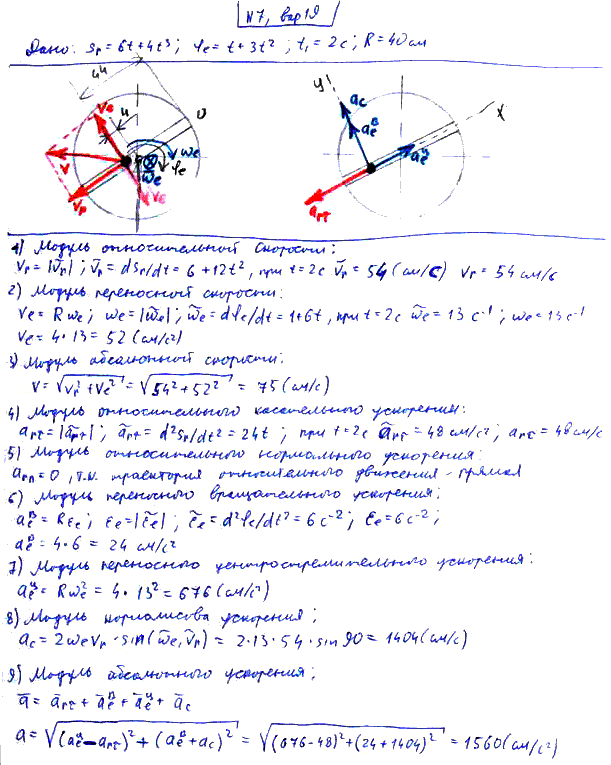 N7, вар19
Дано: Sr = 6t+4t³; φe = t+3t²; t₁ = 2c; R=40см
44
Ve
4
O
V
ωe
φe
ω̄e
Vr
VE
y
x
ac
aeᴮ
aeᵘ
arτ
1) Модуль относительной скорости:
Vr = |Ṽr|; Ṽr = dSr/dt = 6+12t², при t=2c Ṽr = 54 (см/с) Vr = 54 см/с
2) Модуль переносной скорости:
Ve = Rωe; ωe = |ω̃e|; ω̃e = dφe/dt = 1+6t, при t=2c ω̃e = 13 c⁻¹; ωe = 13 c⁻¹
Ve = 4·13 = 52 (см/с²)
3) Модуль абсолютной скорости:
V = √(Vr²+Ve²) = √(54²+52²) = 75 (см/с)
4) Модуль относительного касательного ускорения:
arτ = |ãrτ|; ãrτ = d²Sr/dt² = 24t; при t=2c ãrτ = 48 см/с²; arτ = 48 см/с
5) Модуль относительного нормального ускорения:
arn = 0, т.к. траектория относительного движения - прямая
6) Модуль переносного вращательного ускорения:
aeᴮ = Rεe; εe = |ε̃e|; ε̃e = d²φe/dt² = 6 c⁻²; εe = 6 c⁻²;
aeᴮ = 4·6 = 24 см/с²
7) Модуль переносного центростремительного ускорения:
aeᵘ = Rωe² = 4·13² = 676 (см/с²)
8) Модуль кориолисова ускорения;
ac = 2ωeVr·sin(ω̄e, V̄r) = 2·13·54·sin90 = 1404 (см/с)
9) Модуль абсолютного ускорения;
ā = ārτ + āeᴮ + āeᵘ + āc
a = √((aeᵘ-arτ)²+(aeᴮ+ac)²) = √((676-48)²+(24+1404)²) = 1560 (см/с²)